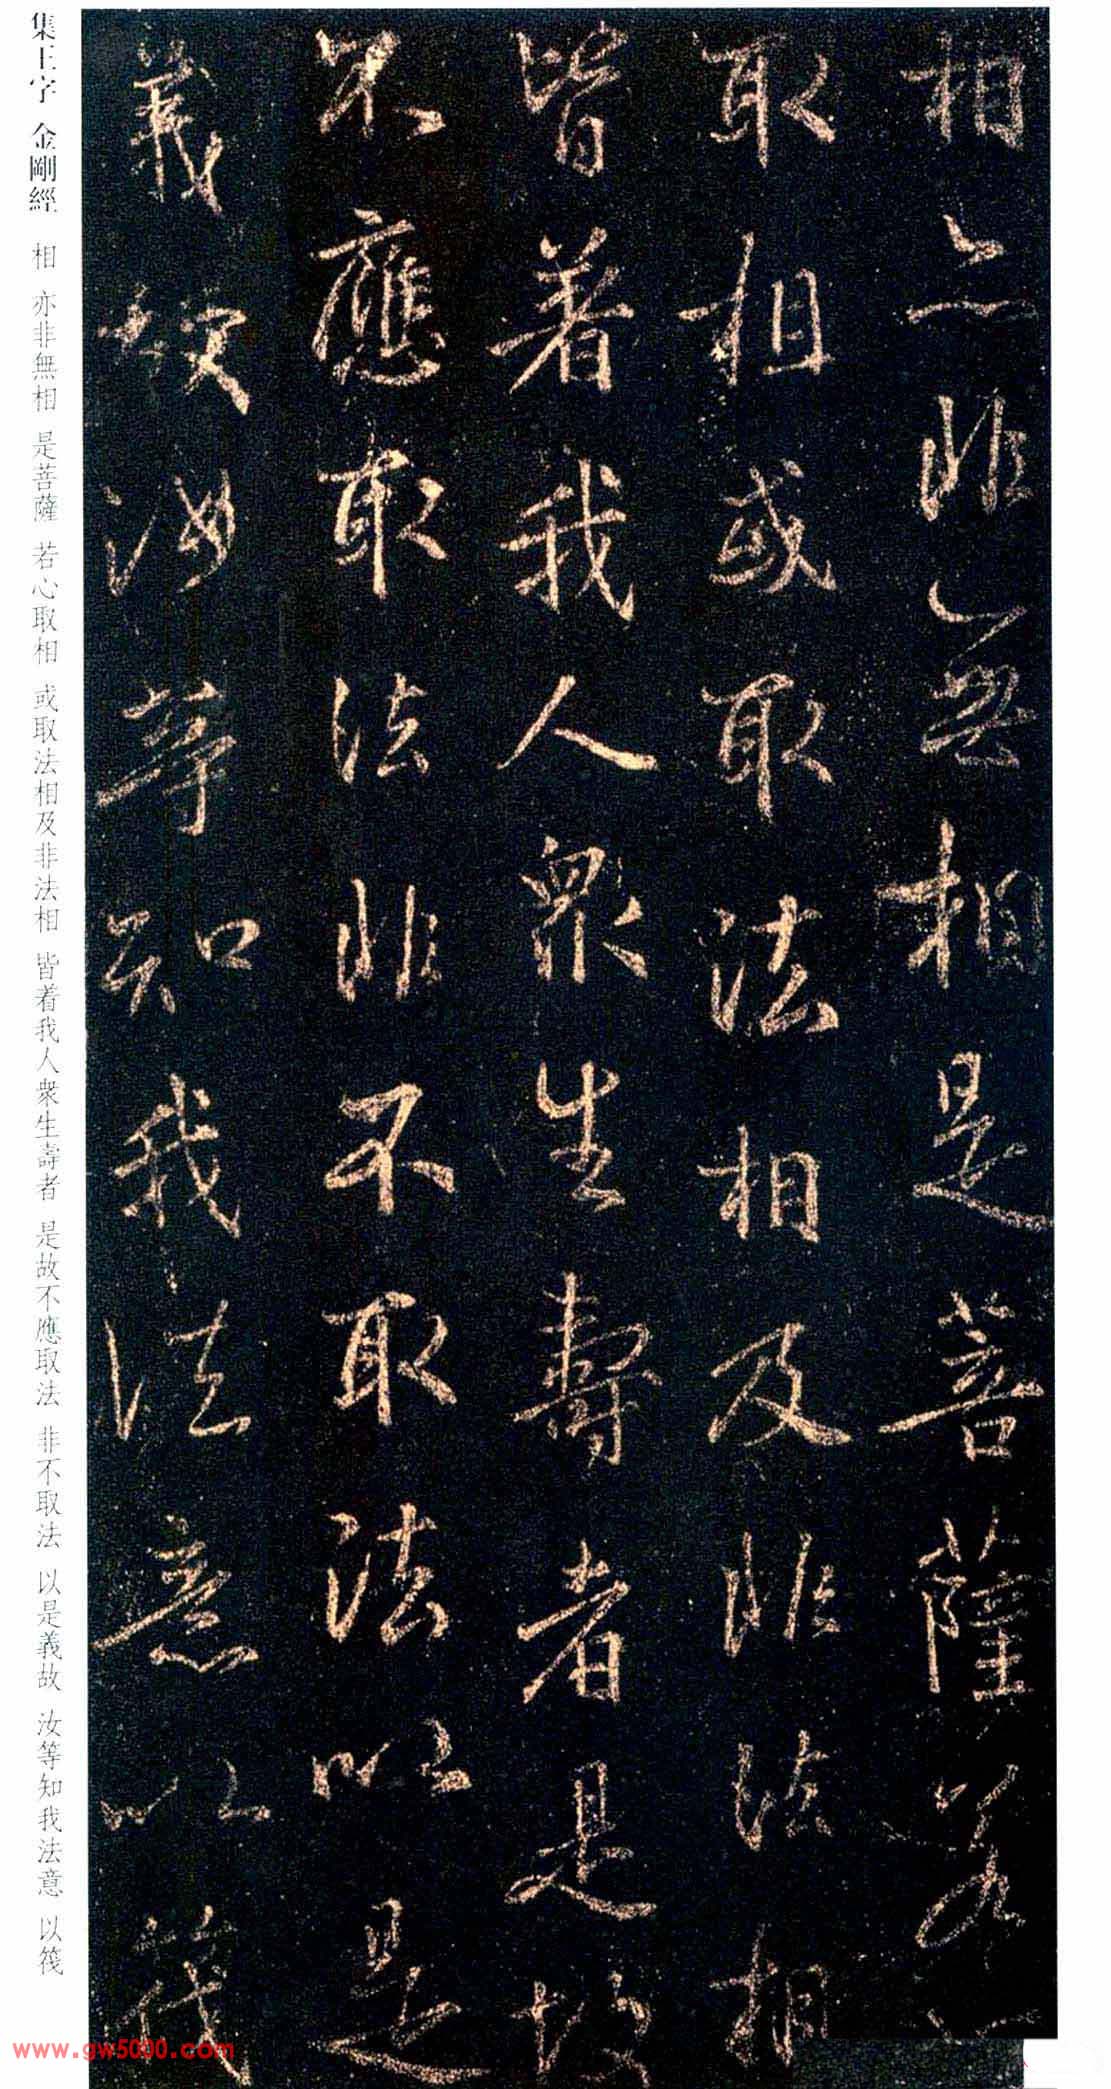 相亦非無相是菩薩若
取相或取法相及非法相
皆著我人衆生壽者是故
不應取法非不取法以是
義故汝等知我法意以筏
集王字 金剛經 相 亦非無相 是菩薩 若心取相 或取法相及非法相 皆着我人衆生壽者 是故不應取法 非不取法 以是義故 汝等知我法意 以筏
www.gw5000.com